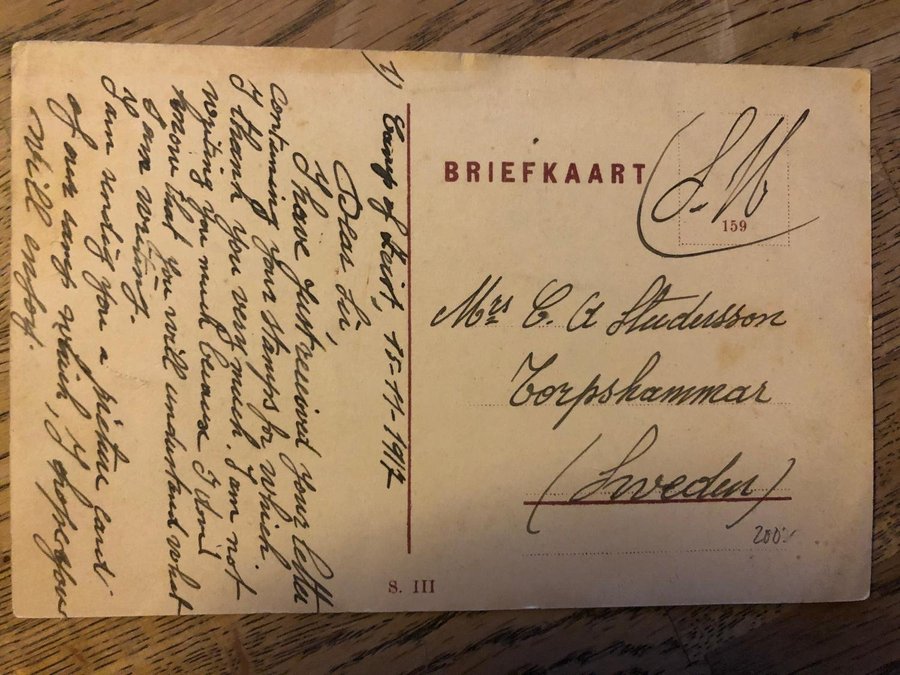 BRIEFKAART
159
Mrs C. A Studersson
Torpshammar
(Sweden)
200:-
S. III
1) Camp of Zeist, 15-11-1917
Dear Sir,
I have just received your letter
containing your stamps for which
I thank you very much. I am not
wryting you much because I don't
know that you will understand what
I am writing.
I am sendig you a picture card
of our camp which, I hope you
will enjoy.